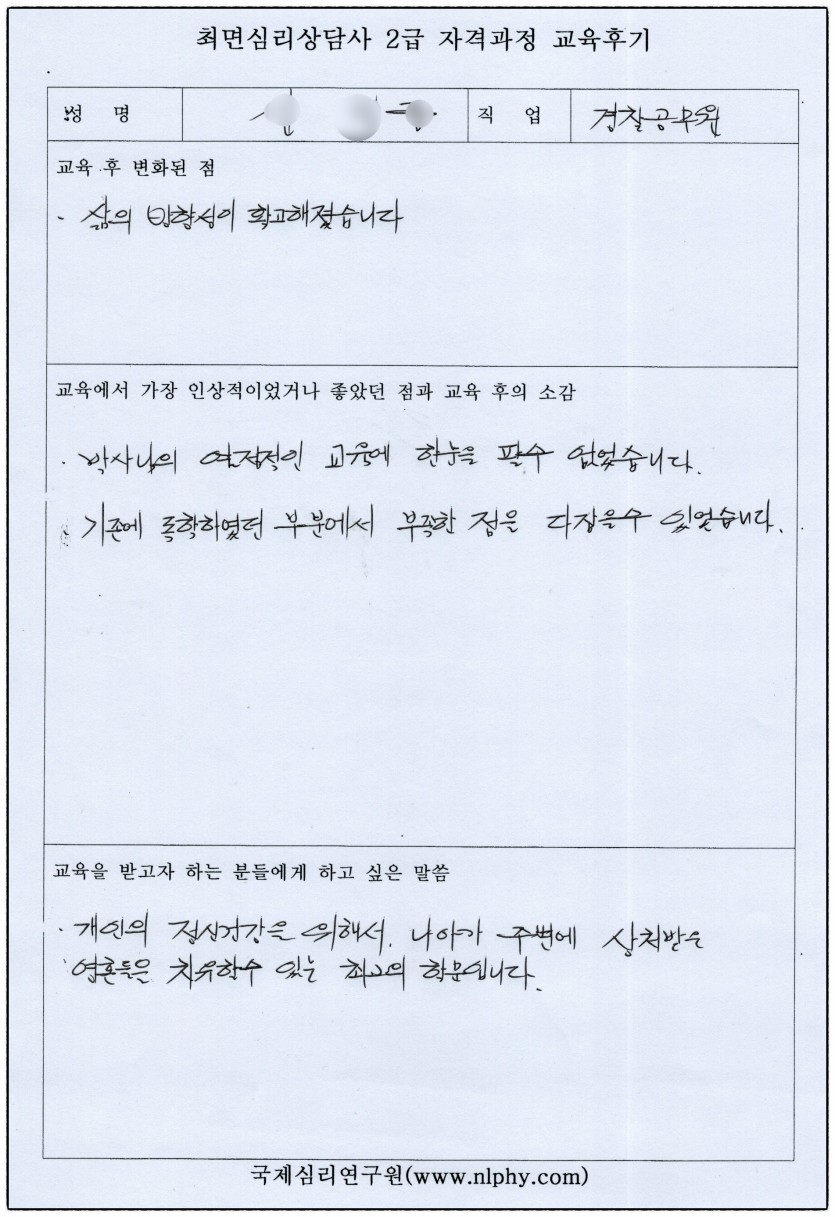 최면심리상담사 2급 자격과정 교육후기
성 명 직 업 경찰공무원
교육 후 변화된 점
· 삶의 방향성이 확고해졌습니다
교육에서 가장 인상적이었거나 좋았던 점과 교육 후의 소감
· 박사님의 열정적인 교육에 한눈을 팔수 없었습니다.
· 기존에 독학하였던 부분에서 부족한 점을 다잡을수 있었습니다.
교육을 받고자 하는 분들에게 하고 싶은 말씀
· 개인의 정신건강을 위해서, 나아가 주변에 상처받은
영혼들은 치유할수 있는 최고의 학문입니다.
국제심리연구원(www.nlphy.com)